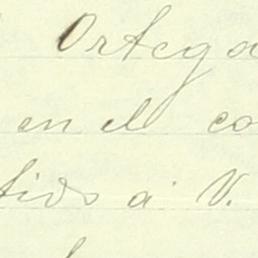 Ortega
en el co
tido á V.